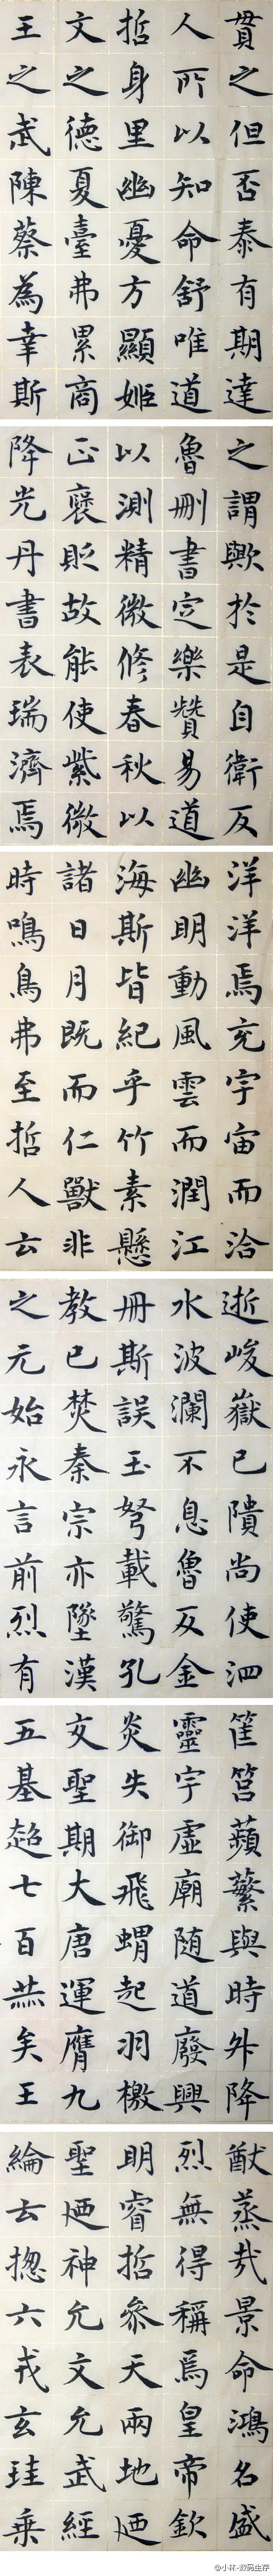 貫之但否泰有期達
人所以知命舒唯道
哲身里幽憂方顯姬
文之德夏臺弗累商
王之武陳蔡為幸斯
之謂歟於是自衛反
魯刪書定樂贊易道
以測精微修春秋以
正褒貶故能使紫微
降光丹書表瑞濟焉
洋洋焉充宇宙而洽
幽明動風雲而潤江
海斯皆紀乎竹素懸
諸日月既而仁獸非
時鳴鳥弗至哲人云
逝峻嶽已隤尚使泗
水波瀾不息魯反金
冊斯誤玉弩載驚孔
教已焚秦宗亦墜漢
之元始永言前烈有
筐筥蘋蘩與時升降
靈宇虛廟随道廢興
炎失御飛蝟起羽檄
文聖期大唐運膺九
五基超七百赫矣王
猷蒸哉景命鴻名盛
烈無得稱焉皇帝欽
明睿哲參天兩地迺
聖迺神允文允武經
綸云惣六戎玄珪乘
@小林-数码生存